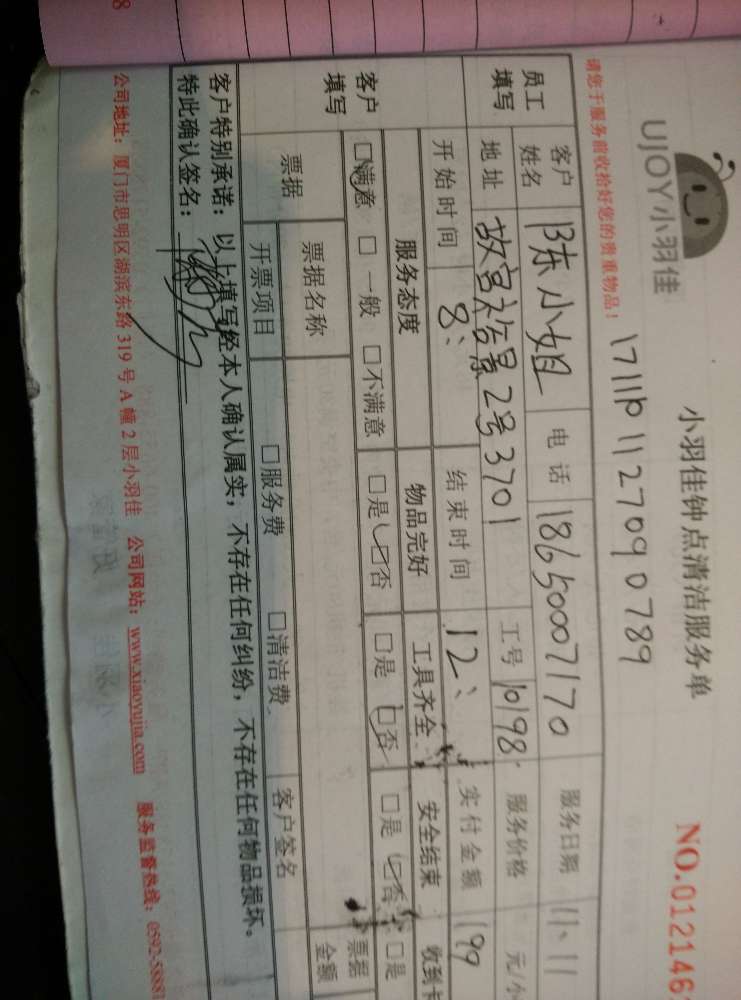 UJOY小羽佳
小羽佳钟点清洁服务单
NO.012146
请您于服务前收拾好您的贵重物品！
17111P112709 0789
员工填写
客户姓名 陈小姐 电话 18650007170 服务日期 11、11
地址 故宫裕景2号3701 工号 10198 服务价格 元/小
开始时间 8： 结束时间 12： 实付金额 199
客户填写
服务态度 物品完好 工具齐全 安全结束 收到卡
□满意 □一般 □不满意 □是 □否 □是 □否 □是 □否 □是
票据 票据名称 □服务费 □清洁费 客户签名 票据金额
开票项目
客户特别承诺：以上填写经本人确认属实，不存在任何纠纷，不存在任何物品损坏。
特此确认签名：
公司地址：厦门市思明区湖滨东路319号A幢2层小羽佳 公司网站：www.xiaoyujia.com 服务监督热线：0592-5888